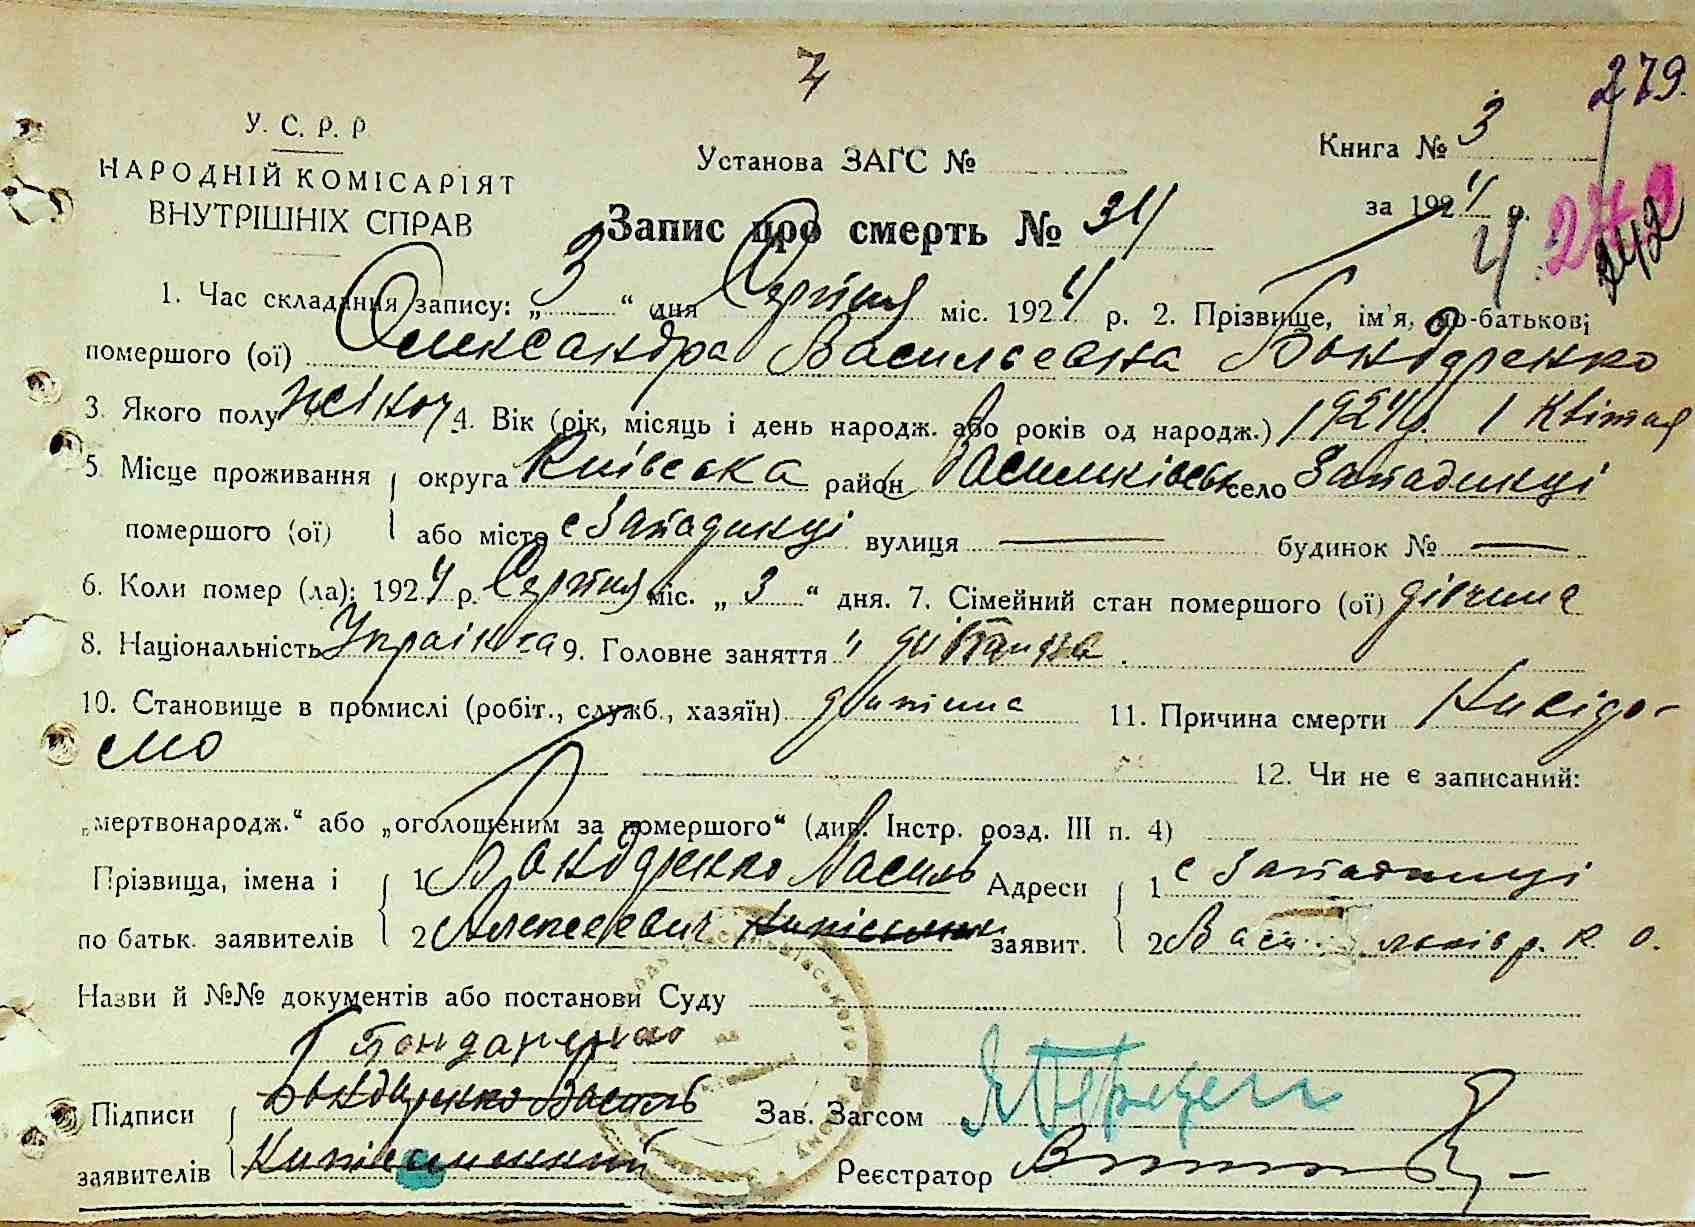 279.
У. С. Р. Р
НАРОДНІЙ КОМІСАРІЯТ
ВНУТРІШНІХ СПРАВ
Установа ЗАГС №
Книга № 3
за 1924 р.
242
Запис про смерть № 34
1. Час складання запису: „ 3 “ дня Серпня міс. 1924 р. 2. Прізвище, ім'я, по-батькові
помершого (ої) Олександра Васильевна Бондаренко
3. Якого полу жіноч 4. Вік (рік, місяць і день народж. або років од народж.) 1924р. 1 Квітня
5. Місце проживання округа Київська район Васильківськ село Западинці
помершого (ої) або місто с Западинці вулиця — будинок № —
6. Коли помер (ла): 1924 р. Серпня міс. „ 3 “ дня. 7. Сімейний стан помершого (ої) дівчина
8. Національність Українка 9. Головне заняття
10. Становище в промислі (робіт., служб., хазяїн) дитина 11. Причина смерти Невідо-
мо
12. Чи не є записаний:
„мертвонародж.“ або „оголошеним за помершого“ (див. Інстр. розд. III п. 4)
Прізвища, імена і 1 Бондаренко Василь Адреси 1 с Западинці
по батьк. заявителів 2 Алексеевич Неписьмен заявит. 2 Васильків р. К. О.
Назви й №№ документів або постанови Суду
Бондаренко
Підписи Бондаренко Василь Зав. Загсом
заявителів Неписьменний Реєстратор